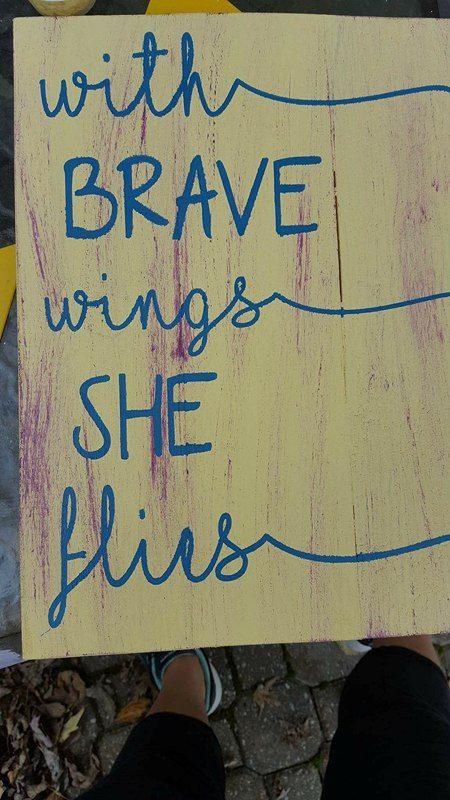 with
BRAVE
wings
SHE
flies